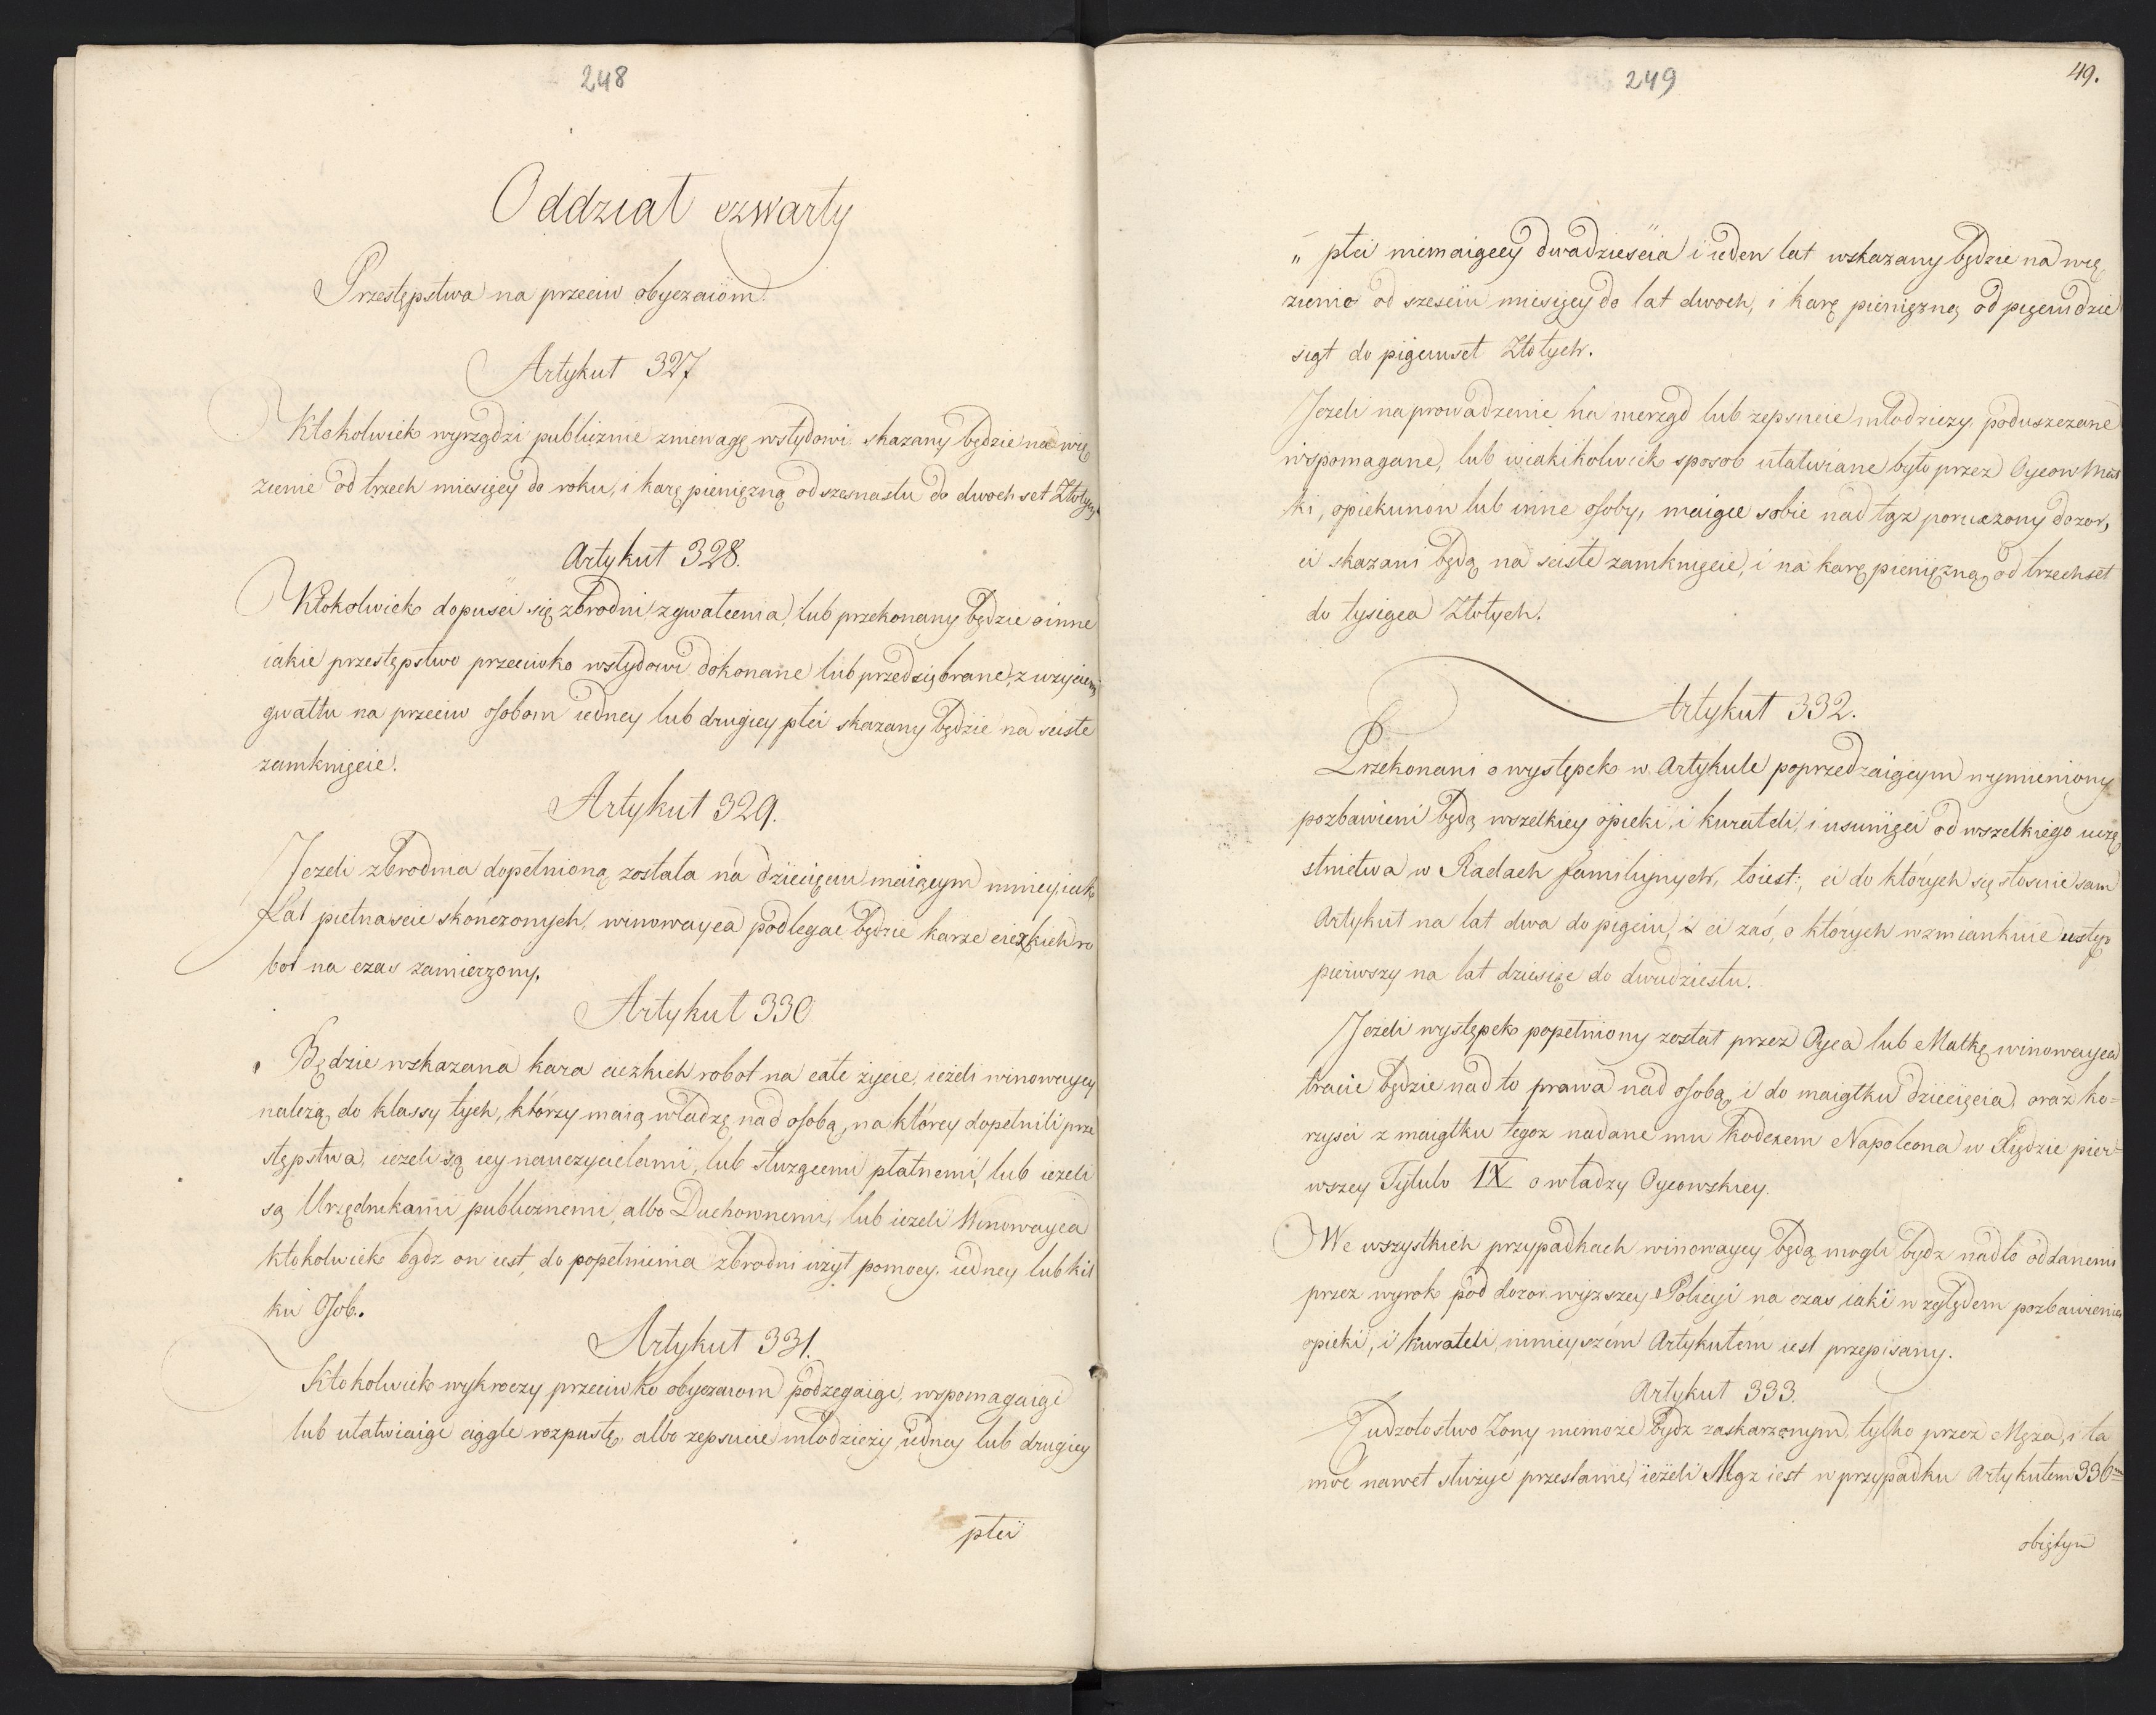 248
Oddział czwarty
Przestępstwa na przeciw obyczaióm.
Artykuł 327
Ktokolwiek wyrządzi publicznie zniewagę wstydowi skazany będzie na wię
zienie od trzech miesięcy do roku, i karę pienięzną od szesnastu do dwochset Złotych
Artykuł 328.
Ktokolwiek dopuści się zbrodni zgwałcenia, lub przekonany będzie o inne
iakie przestępstwo przeciwko wstydowi dokonane lub przedsiębrane, z użyciem
gwałtu na przeciw osobom iedney lub drugiey płci skazany będzie na scisłe
zamknięcie.
Artykuł 329.
Jezeli zbrodnia dopełnioną została na dziecięciu maiącym mniey iak
Lat pietnascie skończonych, winowayca podlegać będzie karze ciezkich ro
bot na czas zamierzony.
Artykuł 330.
Będzie wskazana kara ciezkich robot na całe życie, ieżeli winowaycy
nalezą do klassy tych, którzy maią władzę nad osobą, na którey dopełnili prze
stępstwa, ieżeli są iey nauczycielami, lub służącemi płatnemi, lub ieżeli
są Urzędnikami publicznemi, albo Duchownemi, lub ieżeli Winowayca
ktokolwiek bądz on iest, do popełnienia zbrodni użył pomocy iedney lub kil
ku Osob.
Artykuł 331.
Ktokolwiek wykroczy przeciwko obyczaiom podzegaiąc, wspomagaiąc
lub ułatwiaiąc ciągle rozpustę, albo zepsucie młodzieży iedney lub drugiey
płci
249
49.
„ płci niemaiącey dwadziescia i ieden lat wskazany będzie na wię
zienie od szesciu miesięcy do lat dwoch, i karę pienięzną od pięciudzie
siąt do pięciuset Złotych.
Jezeli naprowadzenie na nierząd lub zepsucie młodzieży, poduszczane
wspomagane, lub w iakikolwiek sposob ułatwiane było przez Oycow Mat
ki, opiekunow lub inne osoby, maiące sobie nad tąz poruczony dozor,
ci skazani będą na scisłe zamknięcie, i na karę pienięzną od trzechset
do tysiąca Złotych.
Artykuł 332.
Przekonani o występek w Artykule poprzedzaiącym wymieniony
pozbawieni będą wszelkiey opieki, i kurateli, i usunięci od wszelkiego ucze
stnictwa w Radach familiynych, toiest: ci do których się stosuie sam
Artykuł na lat dwa do pięciu, ci zaś, o których wzmiankuie ustęp
pierwszy na lat dziesięc do dwudziestu.
Jezeli występek popełniony został przez Oyca lub Matkę winowayca
tracie będzie nad to prawa nad osobą, i do maiątku dziecięcia, oraz ko-
rzysci z maiątku tegoz nadane mu Kodexem Napoleona w Xiędzie pier-
wszey Tytulo IX o władzy Oycowskiey.
We wszystkich przypadkach winowaycy będą mogli bydz nadto oddanemi
przez wyrok pod dozor wyzszey Policyi na czas iaki względem pozbawienia
opieki, i kurateli, ninieyszém Artykułem iest przepisany.
Artykuł 333.
Cudzołostwo Zony niemoże bydz zaskarżonym, tylko przez Męza, i ta
moc nawet służyć przestanie, ieżeli Mąz iest w przypadku Artykułem 336m
obiętym